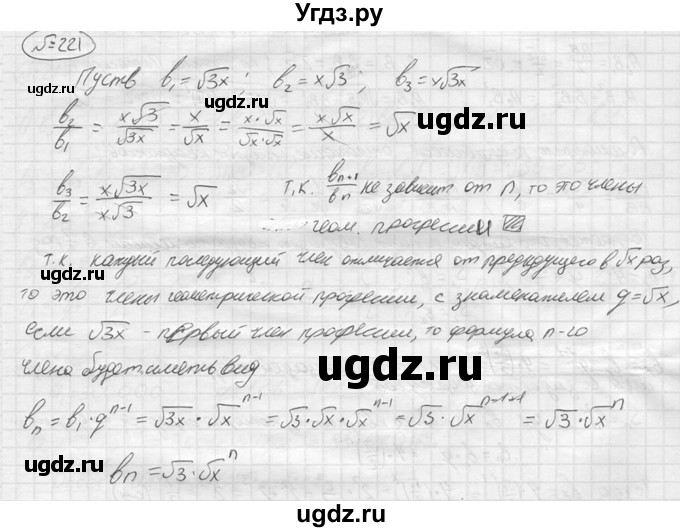 Угдз.ру
№221
Пусть b₁ = √3x; b₂ = x√3; b₃ = x√3x
b₂/b₁ = x√3/√3x = x/√x = x·√x/√x·√x = x√x/x = √x
b₃/b₂ = x√3x/x√3 = √x т.к. bₙ₊₁/bₙ не зависит от n, то это члены
геом. прогрессии
т.к. каждый последующий член отличается от предыдущего в √x раз,
то это члены геометрической прогрессии, с знаменателем q = √x,
если √3x - первый член прогрессии, то формула n-го
члена будет иметь вид
bₙ = b₁·qⁿ⁻¹ = √3x·√xⁿ⁻¹ = √3·√x·√xⁿ⁻¹ = √3·√xⁿ⁻¹⁺¹ = √3·√xⁿ
bₙ = √3·√xⁿ
ugdz.ru
ugdz.ru
ugdz.ru
ugdz.ru
ugdz.ru
ugdz.ru
ugdz.ru
ugdz.ru